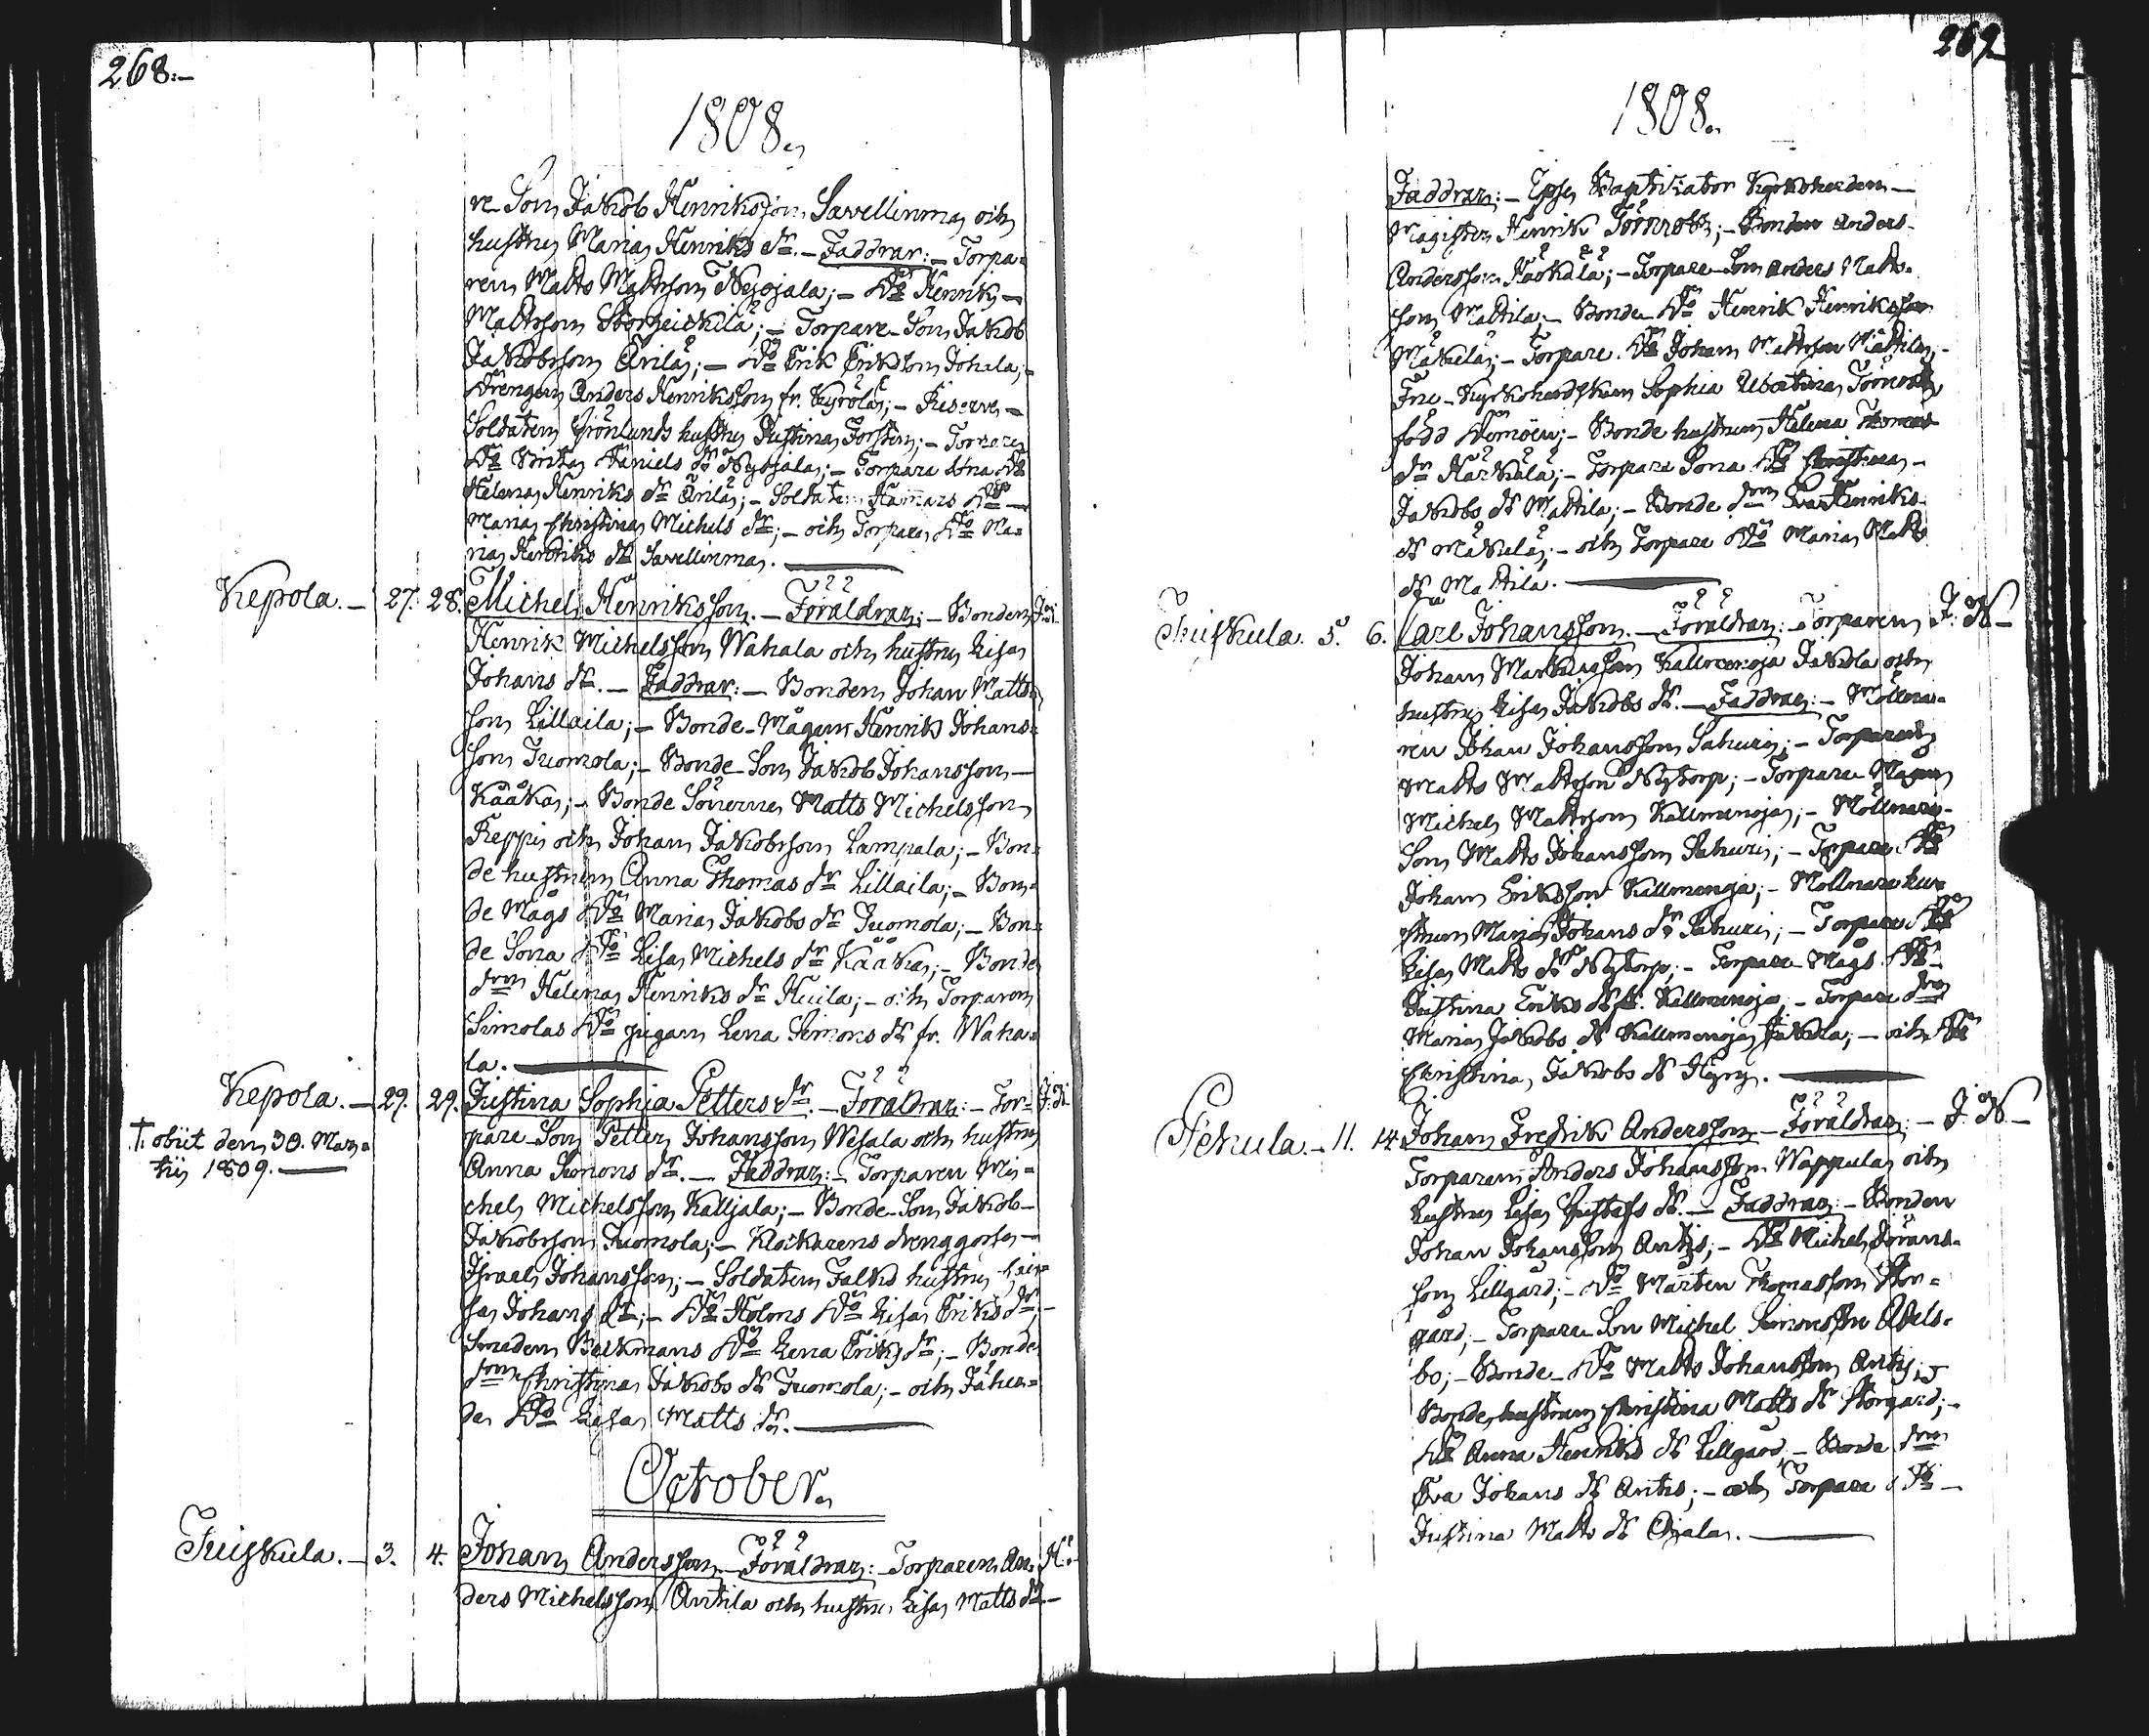 268:-
1808.
re Son Jakob Henriksson Savellinma och
hustru Maria Henriks dr. - Faddrar: - Torpa=
ren Matts Mattsson Nygjala; - Do Henrik -
Mattsson Storheickilä; - Torpare Son Jakob
Jakobsson Ärilä; - Do Erik Eriksson Johala; -
Drengen Anders Henriksson fr. Kyrölä; - Reserve =
Soldaten Grönlunds hustru Justina Torsten; - Torpare
Do Brita Daniels dr Nygjala; - Torpare Sona Do
Helena Henriks dr Ärilä; - Soldaten Hammars Do -
Maria Christina Michels dr; - och Torpare Do Ma=
ria Henriks dr Savellinma.
Kepola. - 27. 28. Michel Henriksson. - Föräldrar: - Bonden J: N
Henrik Michelsson Wahala och hustru Lisa
Johans dr. - Faddrar: - Bonden Johan Matts=
son Lillaila; - Bonde-Mågen Henrik Johans=
son Tuomola; - Bonde Son Jakob Johansson -
Kååka; - Bonde Sönerne Matts Michelsson
Reppi och Johan Jakobsson Lampala; - Bon=
de hustrun Anna Thomas dr Lillaila; - Bon=
de Mågs Do Maria Jakobs dr Tuomola; - Bon=
de Sona Do Lisa Michels dr Kååka; - Bonde
drn Helena Henriks dr Huila; - och Torparen
Simolas Do pigan Lena Simons dr fr. Waha=
la.
Kepola. - 29. 29. Justina Sophia Petters dr. - Föräldrar: - Tor= J: N
pare Son Petter Johansson Wesala och hustru
† obiit den 30. Mar=
tii 1809.
Anna Simons dr. - Faddrar: - Torparen Mi=
chel Michelsson Kalljala; - Bonde-Son Jakob -
Jakobsson Tuomola; - Klockarens drenggosse -
Israel Johansson; - Soldaten Falks hustru
sa Johans dr; - Do Holms Do Lisa Eriks dr; -
Smeden Beckmans Do Lena Eriks dr; - Bonde
drn Christina Jakobs dr Tuomola; - och
Do Lisa Matts dr.
October.
Tuiskula. - 3. 4. Johan Andersson - Föräldrar: - Torparen An=
ders Michelsson Antila och hustru Lisa Matts dr -
269
1808.
Faddrar: - Ipse Baptisator Kyrkoherden -
Magister Henrik Törnroth; - Bonden Anders
Andersson Kärkälä; - Torpare Son Anders Matts=
son Mattila; - Bonde Do Henrik Henriksson
Mäkelä; - Torpare Do Johan Mattsson Mattila; -
Fru Kyrkoherdskan Sophia Törnroth
född - Bonde hustrun Helena Thomas
dr Kärkälä; - Torpare Sona Do Christina -
Jakobs dr Mattila; - Bonde drn Eva Henriks
dr Mäkelä; - och Torpare Do Maria Matts
dr Mattila.
Tuiskula. 5. 6. Carl Johansson. - Föräldrar: - Torparen J: N -
Johan Kallmenoja Jakola och
hustru Lisa Jakobs dr. - Faddrar: - Möllna=
ren Johan Johansson Sahuri; - Torparen
Matts Mattsson Nytorp; - Torpare Mågen
Michel Mattsson Kallmenoja; - Möllnare=
Son Matts Johansson Sahuri; - Torpare Do
Johan Eriksson Kallmenoja; - Möllnare hu=
strun Maria Johans dr Sahuri; - Torpare Do
Lisa Matts dr Nytorp; - Torpare Mågs Do
Justina Eriks dr Kallmenoja; - Torpare drn
Maria Jakobs dr Kallmenoja Jakola; - och Do
Christina Jakobs dr Hyry.
Pehula. - 11. 14. Johan Fredrik Andersson - Föräldrar: - J: N -
Torparen Anders Johansson Wappula och
hustru Lisa Gustafs dr. - Faddrar: - Bonden
Johan Johansson Antis; - Do Michel Görans=
son Lillgård; - Do Mårten Thomasson Stor=
gård; - Torpare Son Michel Simonsson Abels=
bo; - Bonde Do Matts Johansson Antis; -
Bonde hustrun Christina Matts dr Storgård; -
Do Anna Henriks dr Lillgård - Bonde drn
Eva Johans dr Antis; - och Torpare Do -
Justina Matts dr Ojala.